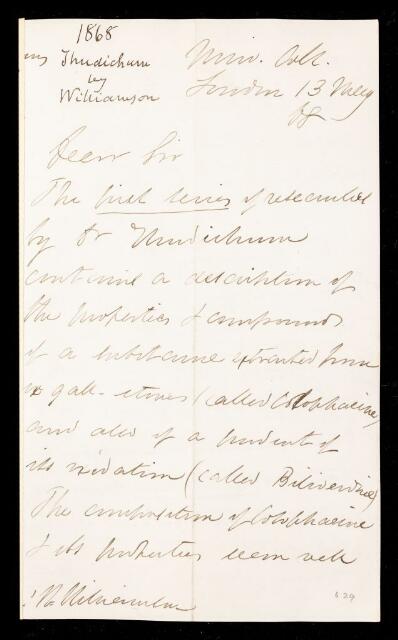 1868
Thudichum
by
Williamson
Univ. Coll.
London 13 May
68
Dear Sir
The first series of researches
by Dr Thudichum
contains a description of
the properties & compounds
of a substance extracted from
ox gall-stones (called Cholophaeine)
and also of a product of
its oxidation (called Biliverdine)
The composition of Cholophaeine
& its properties seem well